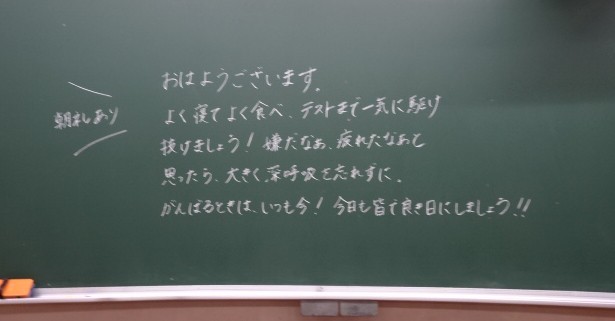 おはようございます。
朝礼あり
よく寝てよく食べ、テストまで一気に駆け
抜けましょう！嫌だなぁ、疲れたなぁと
思ったら、大きく深呼吸を忘れずに。
がんばるときは、いつも今！今日も皆で良き日にしましょう!!